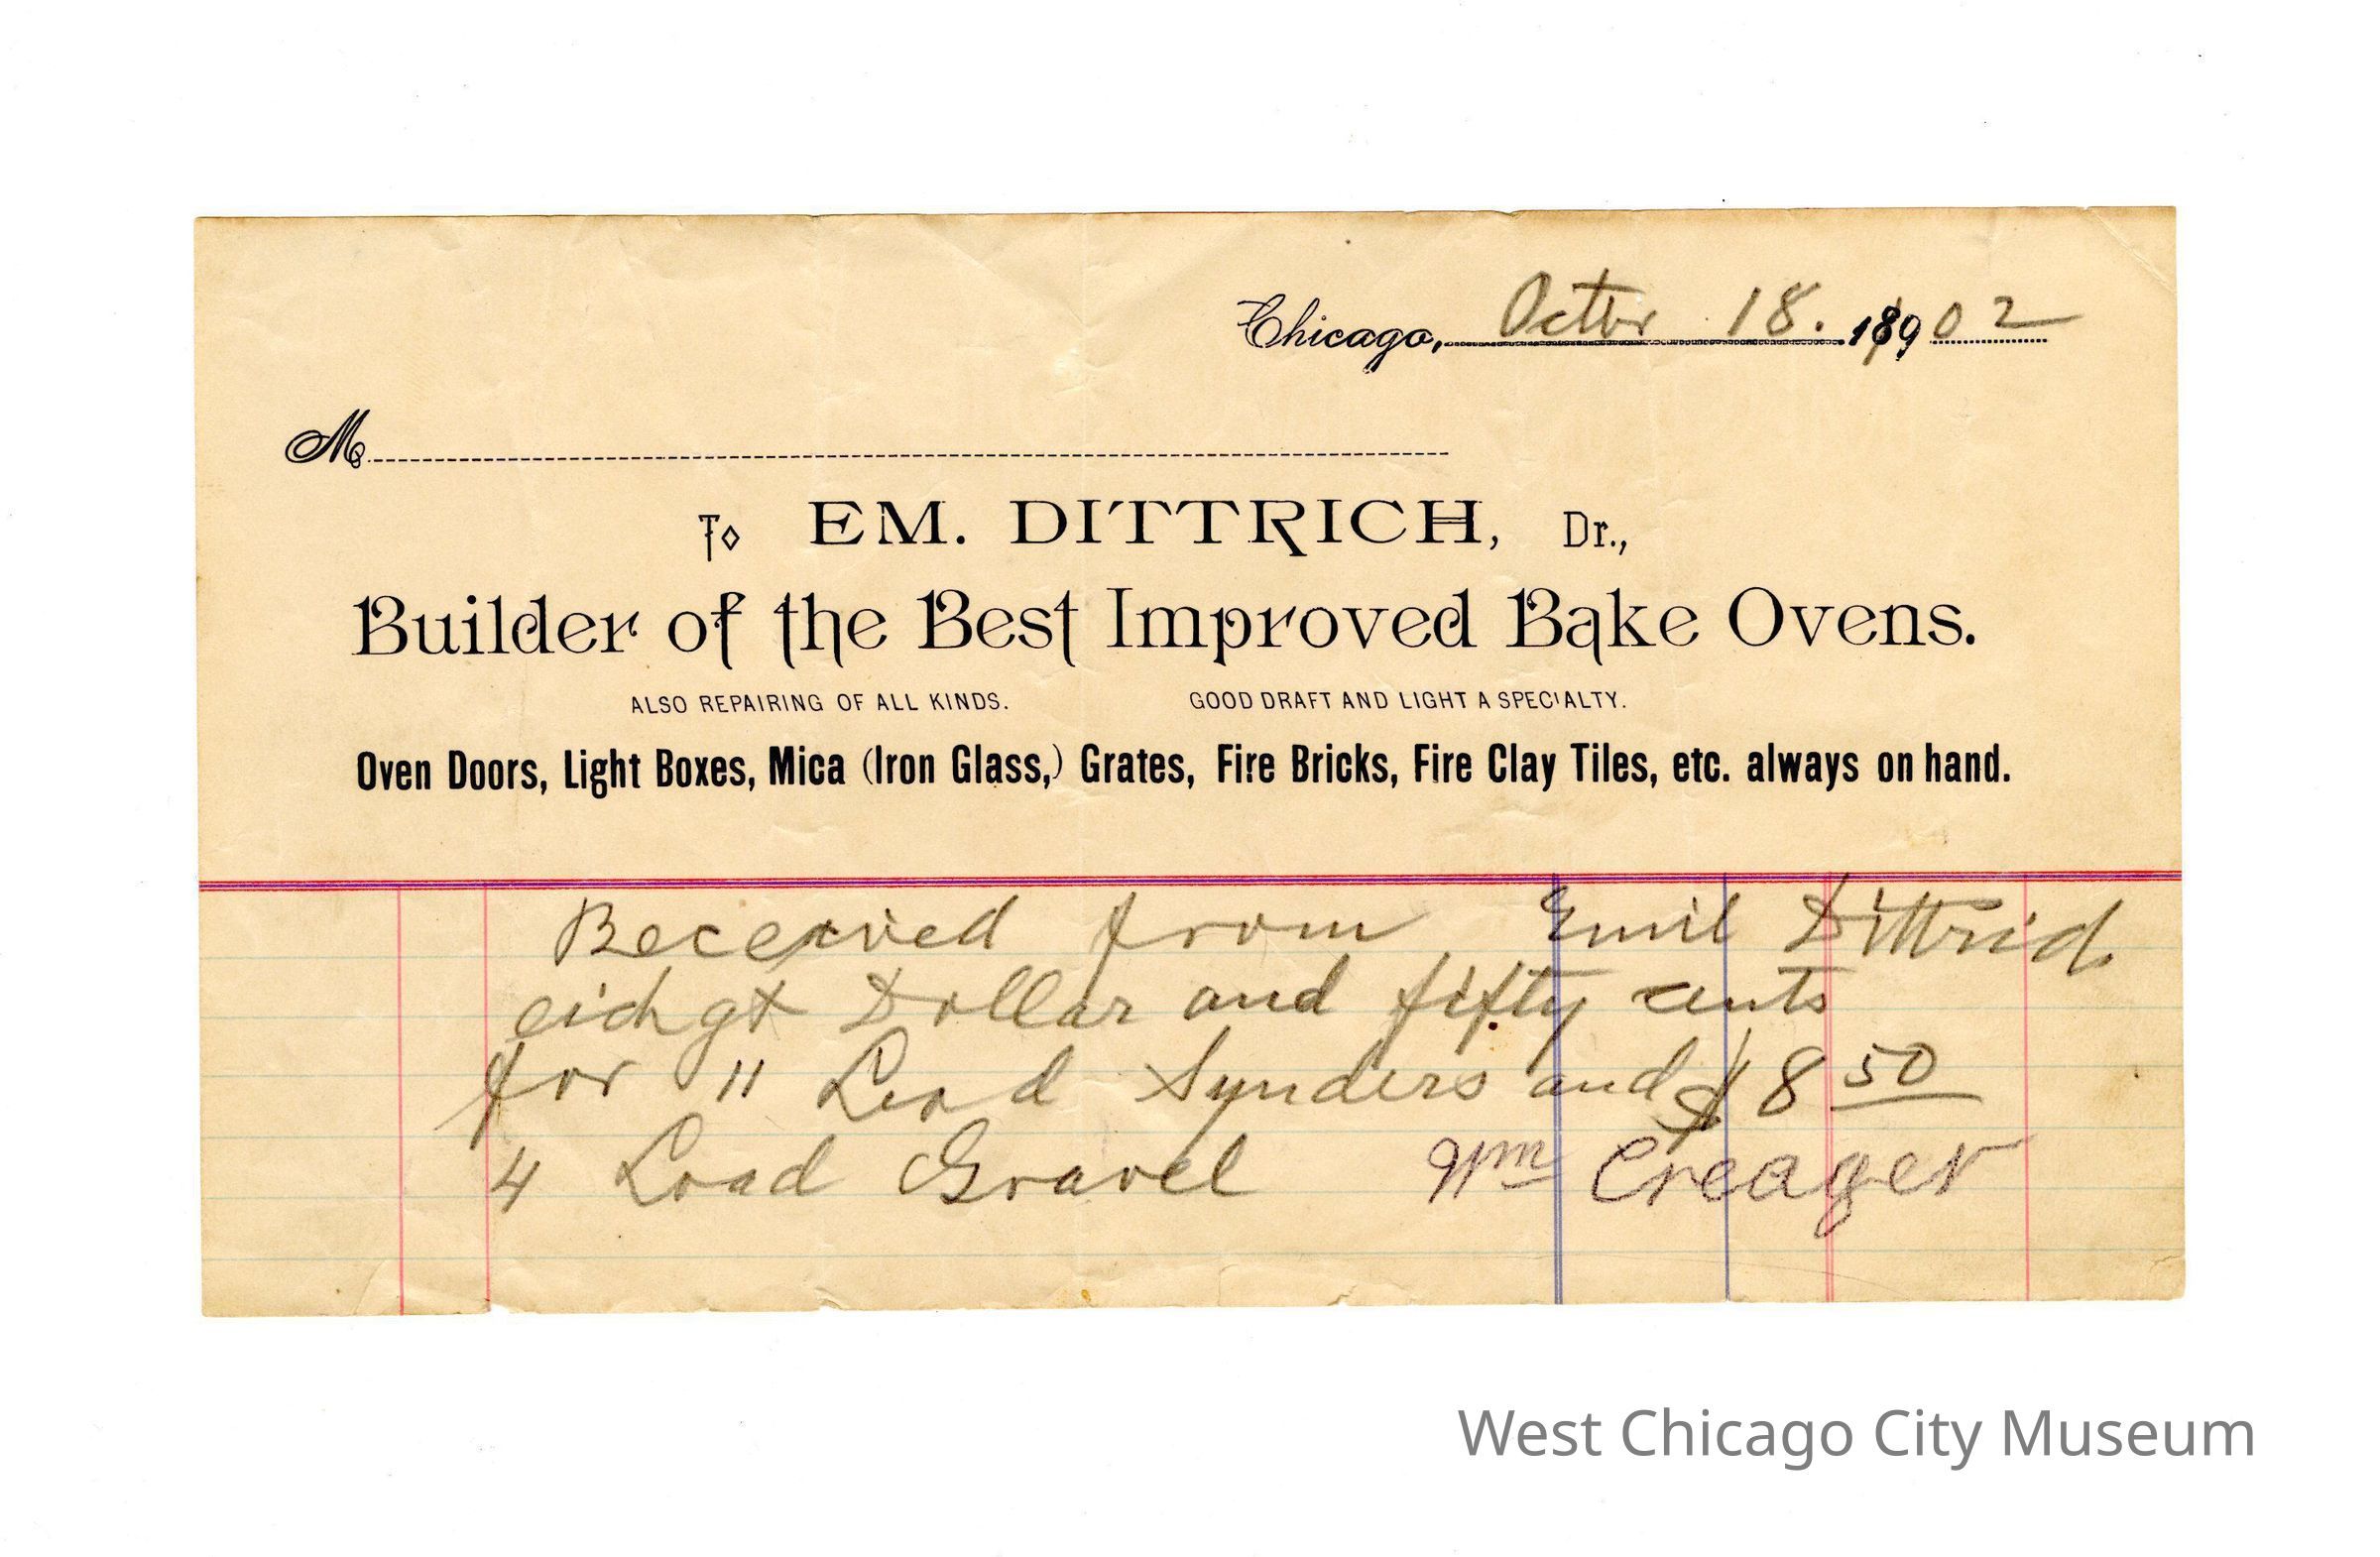 Chicago, Octbr 18. 18902
M
To EM. DITTRICH, Dr.,
Builder of the Best Improved Bake Ovens.
ALSO REPAIRING OF ALL KINDS. GOOD DRAFT AND LIGHT A SPECIALTY.
Oven Doors, Light Boxes, Mica (Iron Glass,) Grates, Fire Bricks, Fire Clay Tiles, etc. always on hand.
Received from Emil Dittrich
eichgt Dollar and fifty cents
for 11 Load Synders and $8 50
4 Load Gravel Wm Creager
West Chicago City Museum